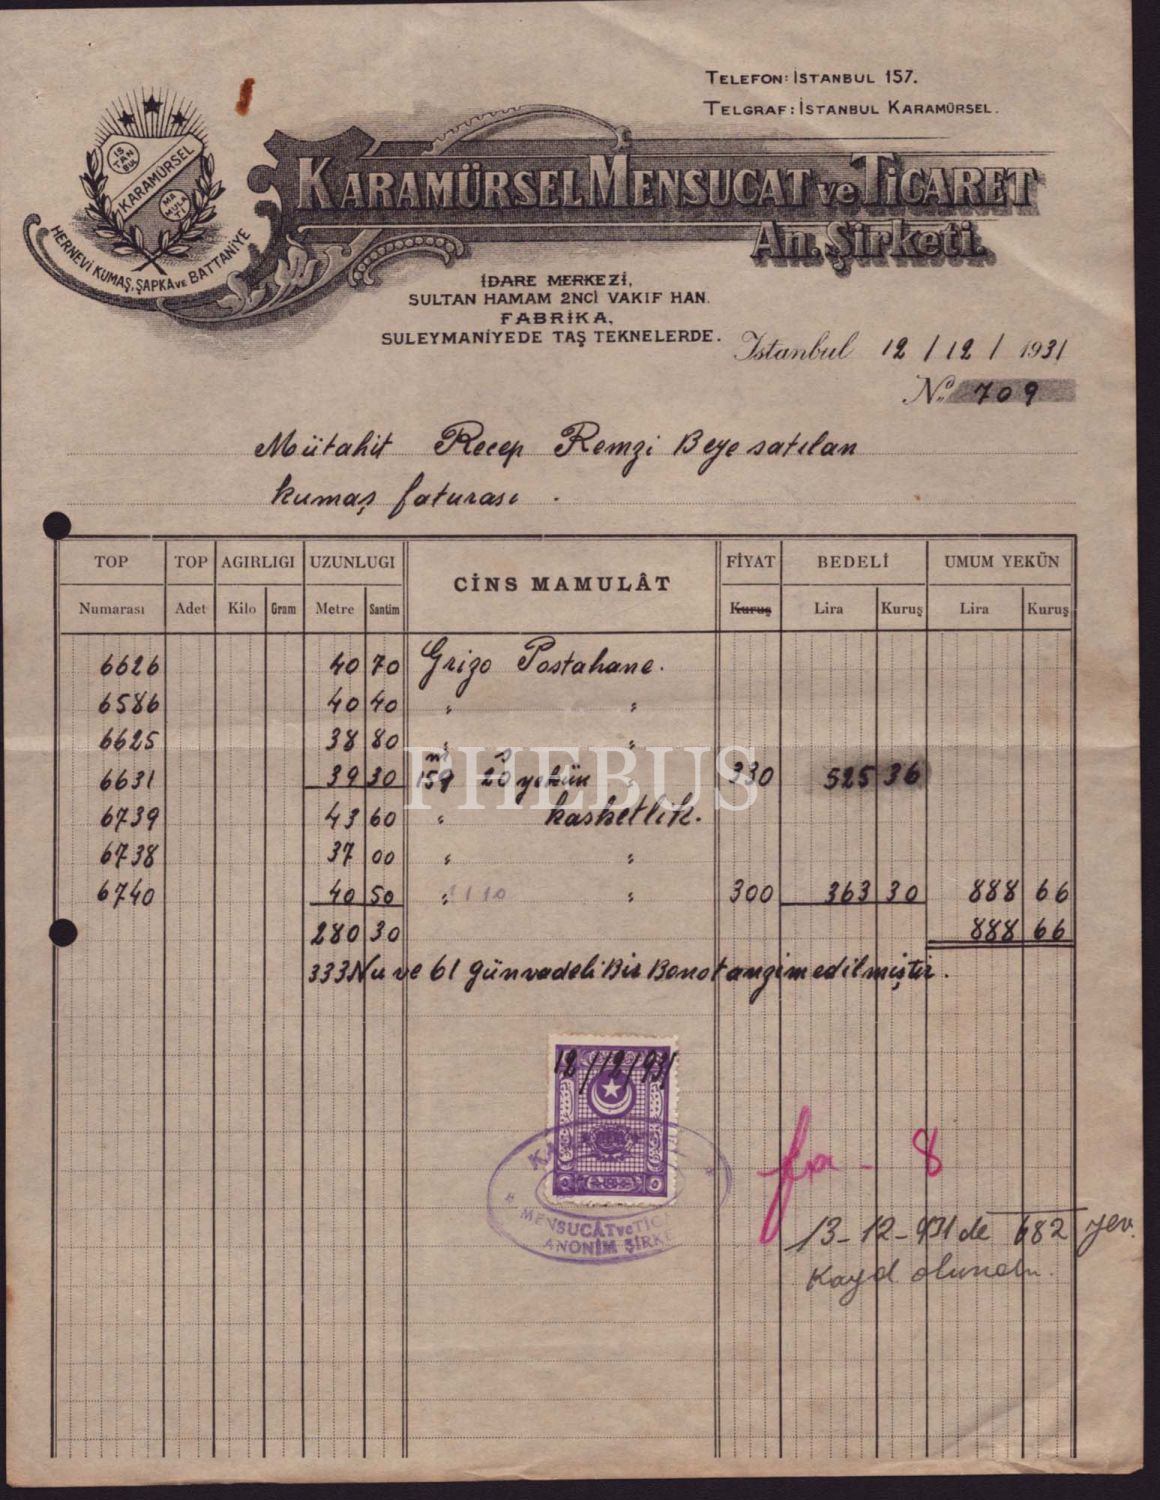 TELEFON: İSTANBUL 157.
TELGRAF: İSTANBUL KARAMÜRSEL.
İSTANBUL
KARAMÜRSEL
MAMULATI
HERNEVİ KUMAŞ, ŞAPKA VE BATTANİYE
KARAMÜRSEL MENSUCAT ve TİCARET
An. Şirketi.
İDARE MERKEZİ,
SULTAN HAMAM 2NCİ VAKIF HAN.
FABRİKA,
SULEYMANİYEDE TAŞ TEKNELERDE.
Istanbul 12 / 12 / 1931
No. 709
Mütahit Recep Remzi Beye satılan
kumaş faturası .
TOP TOP AGIRLIGI UZUNLUGI CİNS MAMULÂT FİYAT BEDELİ UMUM YEKÜN
Numarası Adet Kilo Gram Metre Santim Kuruş Lira Kuruş Lira Kuruş
6626 40 70 Grizo Postahane.
6586 40 40 " "
6625 38 80 " "
6631 39 30 159 m 20 s yekün " 330 525 36
6739 43 60 " kasketlik.
6738 37 00 " "
6740 40 50 " 1110 " 300 363 30 888 66
280 30 888 66
333 Nu ve 61 günvadeli Bir Bono tanzim edilmiştir.
12/12/931
KA
MENSUCÂT ve TİC
ANONİM ŞİRKE
fa - 8
13-12-931 de 682 yev.
Kayd olundu.
PHEBUS